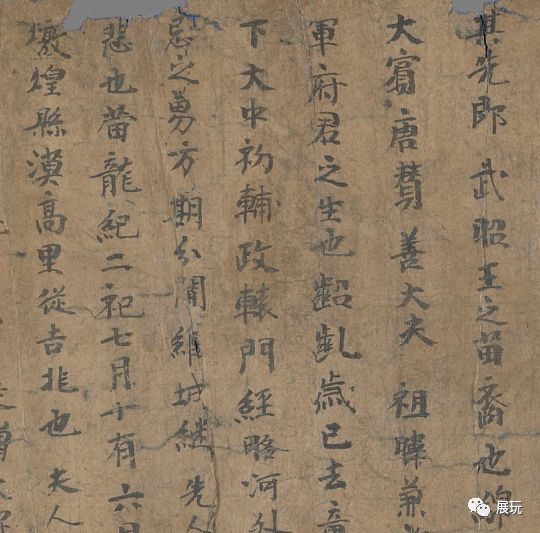 其先即武昭王之苗裔也
大賓唐贊善大夫 祖暉兼
軍府君之生也齠齓歲已去童
下大中初輔政轅門經略河外
忌之勇方期分閫維城継先人
悲也旹龍紀二祀七月十有六日
燉煌縣漠高里從吉兆也 夫人
展玩